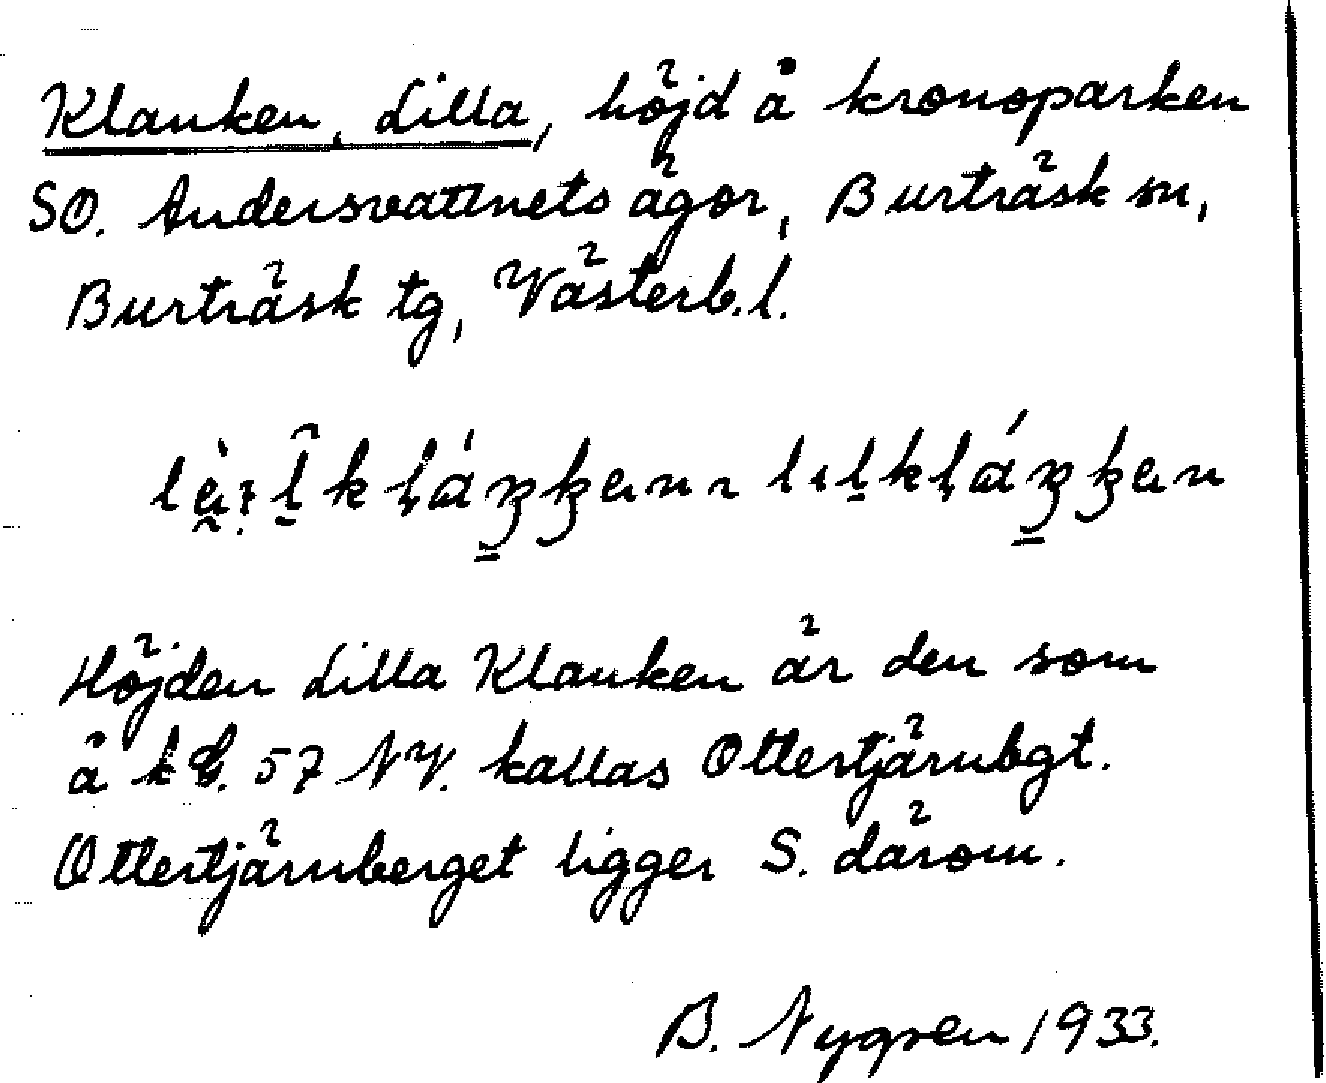 Klanken, Lilla, höjd å kronoparken
SO. Andersvattnets ägor, Burträsk sn,
Burträsk tg, Västerb. l.
Höjden Lilla Klanken är den som
å k G. 57 NV. kallas Ottertjärnbgt.
Ottertjärnberget ligger S. därom.
B. Nygren 1933.